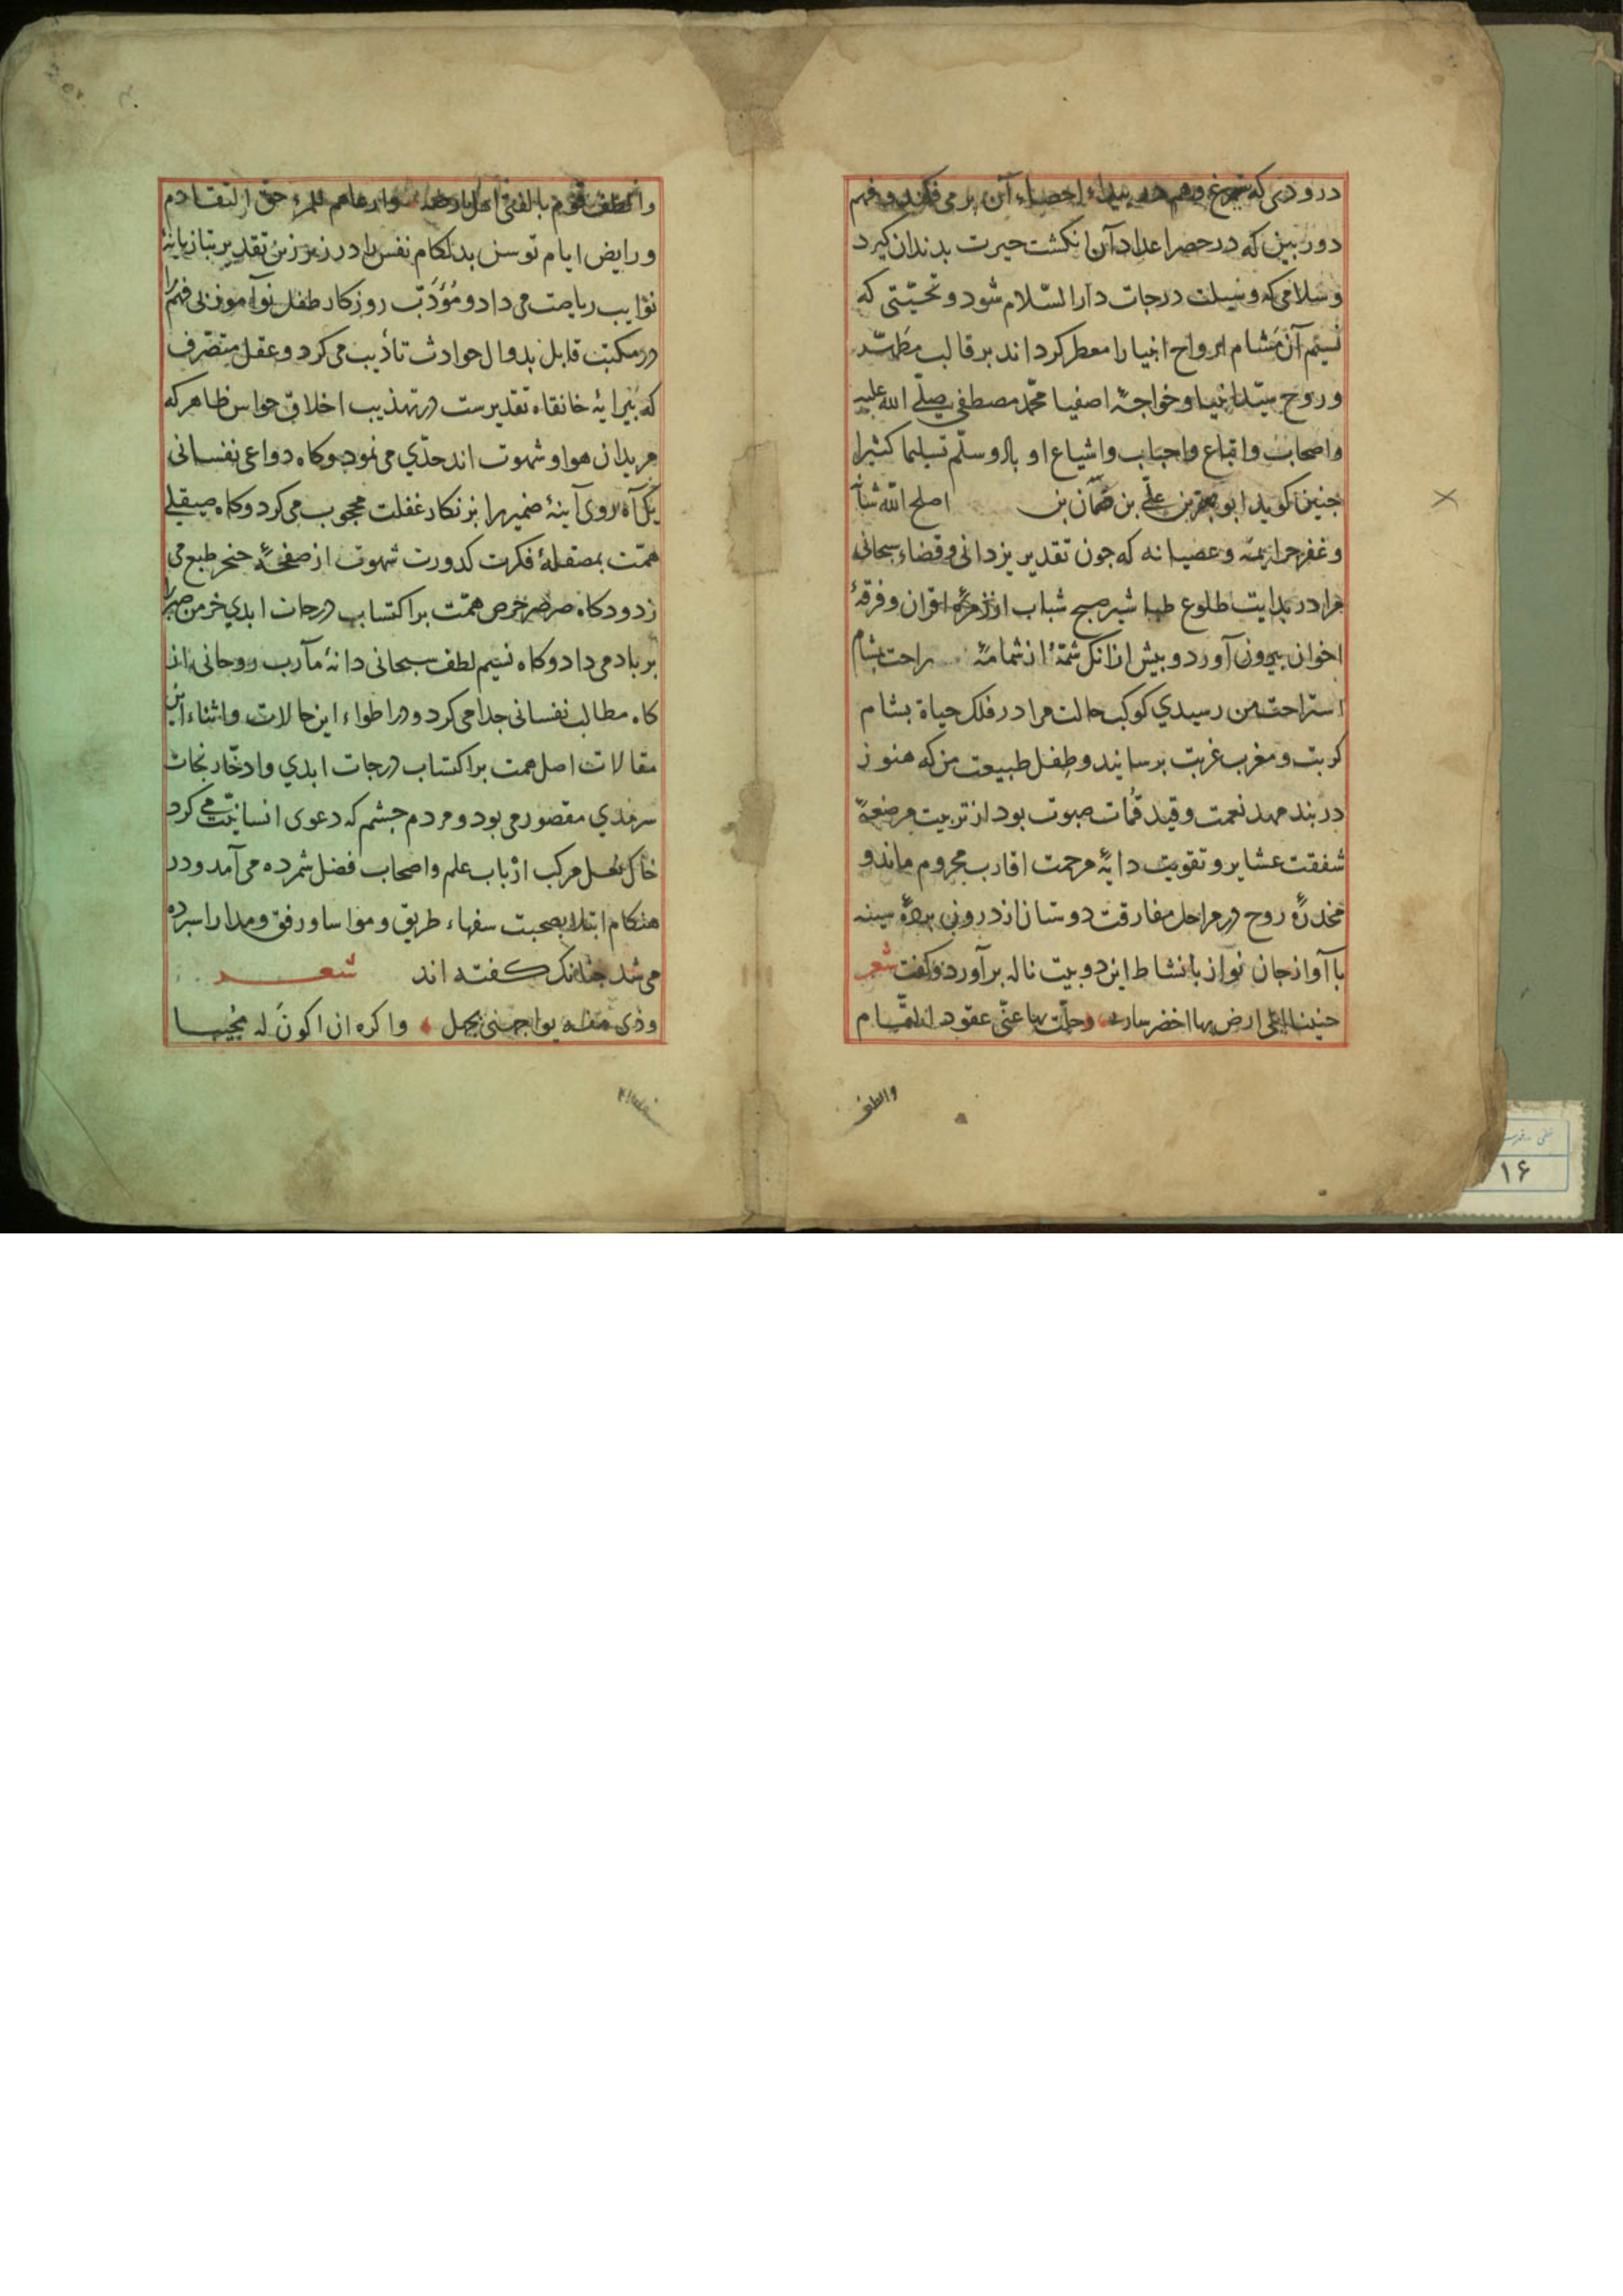 درودی که سیمرغ وهم در بیداء احصاء آن پر می فکند و فهم
دوربین که در حصر اعداد آن انکشت حیرت بدندان کیرد
و سلامی که وسیلت درجات دار السّلام شود و تحیّتی که
نسیم آن مشام ارواح انبیا را معطر کرداند بر قالب مطهّر
و روح سیّد انبیا و خواجهٔ اصفیا محمّد مصطفی صلّی الله علیه
و اصحاب و اتباع و احباب و اشیاع او باد و سلّم تسلیما کثیرا
جنین کوید ابو بن علّی بن بن اصلح الله شأنه
و غفر جرایمه و عصیانه که جون تقدیر یزدانی و قضاء سبحانی
مرا در بدایت طلوع طباشیر صبح شباب از زمرهٔ اقران و فرقهٔ
اخوان بیرون آورد و بیش ازانک شمّهٔ از شمامهٔ راحت بمشام
استراحت من رسیدی کوکب حالت مرا در فلک حیاة بشام
کربت و مغرب غربت برسانید و طفل طبیعت من که هنوز
در بند مهد نعمت و قید قمات صبوت بود از تربیت مرضعهٔ
شفقت عشایر و تقویت دایهٔ مرحمت اقارب محروم ماند و
مخدرهٔ روح در مراحل مفارقت دوستان از درون بردهٔ سینه
با آواز جان نواز با نشاط این دو بیت ناله برآورد و کفت شعر
حنینا الی ارض بها اخضر وحلّت بها عنّی عقود التمایم
والطف
والطف قوم بالفتی اهل ارضه وارعاهم للمرء حق التقادم
و رایض ایام توسن بدلکام نفس را در زیر زین تقدیر بتازیانهٔ
نوایب ریاضت می داد و مؤدّب روزکار طفل نوآموز بی فهم را
در مکتب قابل بدوال حوادث تأدیب می کرد و عقل متصّرف
که بیرایهٔ خانقاه تقدیرست در تهذیب اخلاق حواس ظاهر که
مریدان هوا و شهوت اند جدّی می نمود و کاه دواعی نفسانی
بیک آه روی آینهٔ ضمیر را بزنکار غفلت محجوب می کرد و کاه صیقل
همّت بمصقلهٔ فکرت کدورت شهوت از صفحهٔ خنجر طبع می
زدود کاه صرصر حرص همّت بر اکتساب درجات ابدی خرمن صبر را
بر باد می داد و کاه نسیم لطف سبحانی دانهٔ مآرب روحانی از
کاه مطالب نفسانی جدا می کرد و در اطواء این حالات و اثناء این
مقالات اصل همت بر اکتساب درجات ابدی و ادخّار نجات
سرمدی مقصور می بود و مردم جشم که دعوی انسانیّت می کرد
خاک نعل مرکب ارباب علم و اصحاب فضل شمرده می آمد و در
هنکام ابتلا بصحبت سفهاء طریق و مواسا و رفق و مدارا سبرده
می شد جنانک کفته اند شعر
وذی سفه یواجهنی بجهل واکره ان اکون له مجیبا